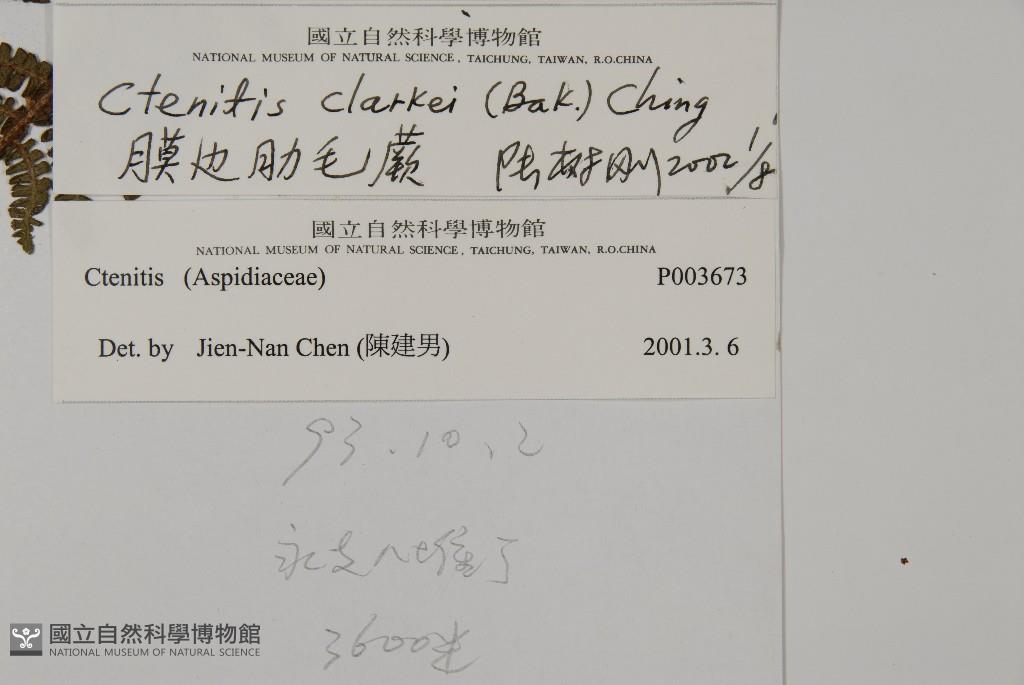 國立自然科學博物館
NATIONAL MUSEUM OF NATURAL SCIENCE, TAICHUNG, TAIWAN, R.O.CHINA
Ctenitis clarkei (Bak.) Ching
膜边肋毛蕨 陆树刚 2002 1/8
國立自然科學博物館
NATIONAL MUSEUM OF NATURAL SCIENCE, TAICHUNG, TAIWAN, R.O.CHINA
Ctenitis (Aspidiaceae) P003673
Det. by Jien-Nan Chen (陳建男) 2001.3. 6
93.10.2
3600
國立自然科學博物館
NATIONAL MUSEUM OF NATURAL SCIENCE